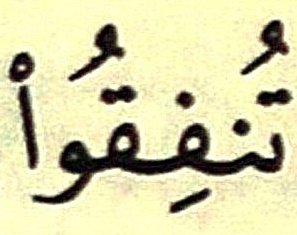 تُنفِقُواْ